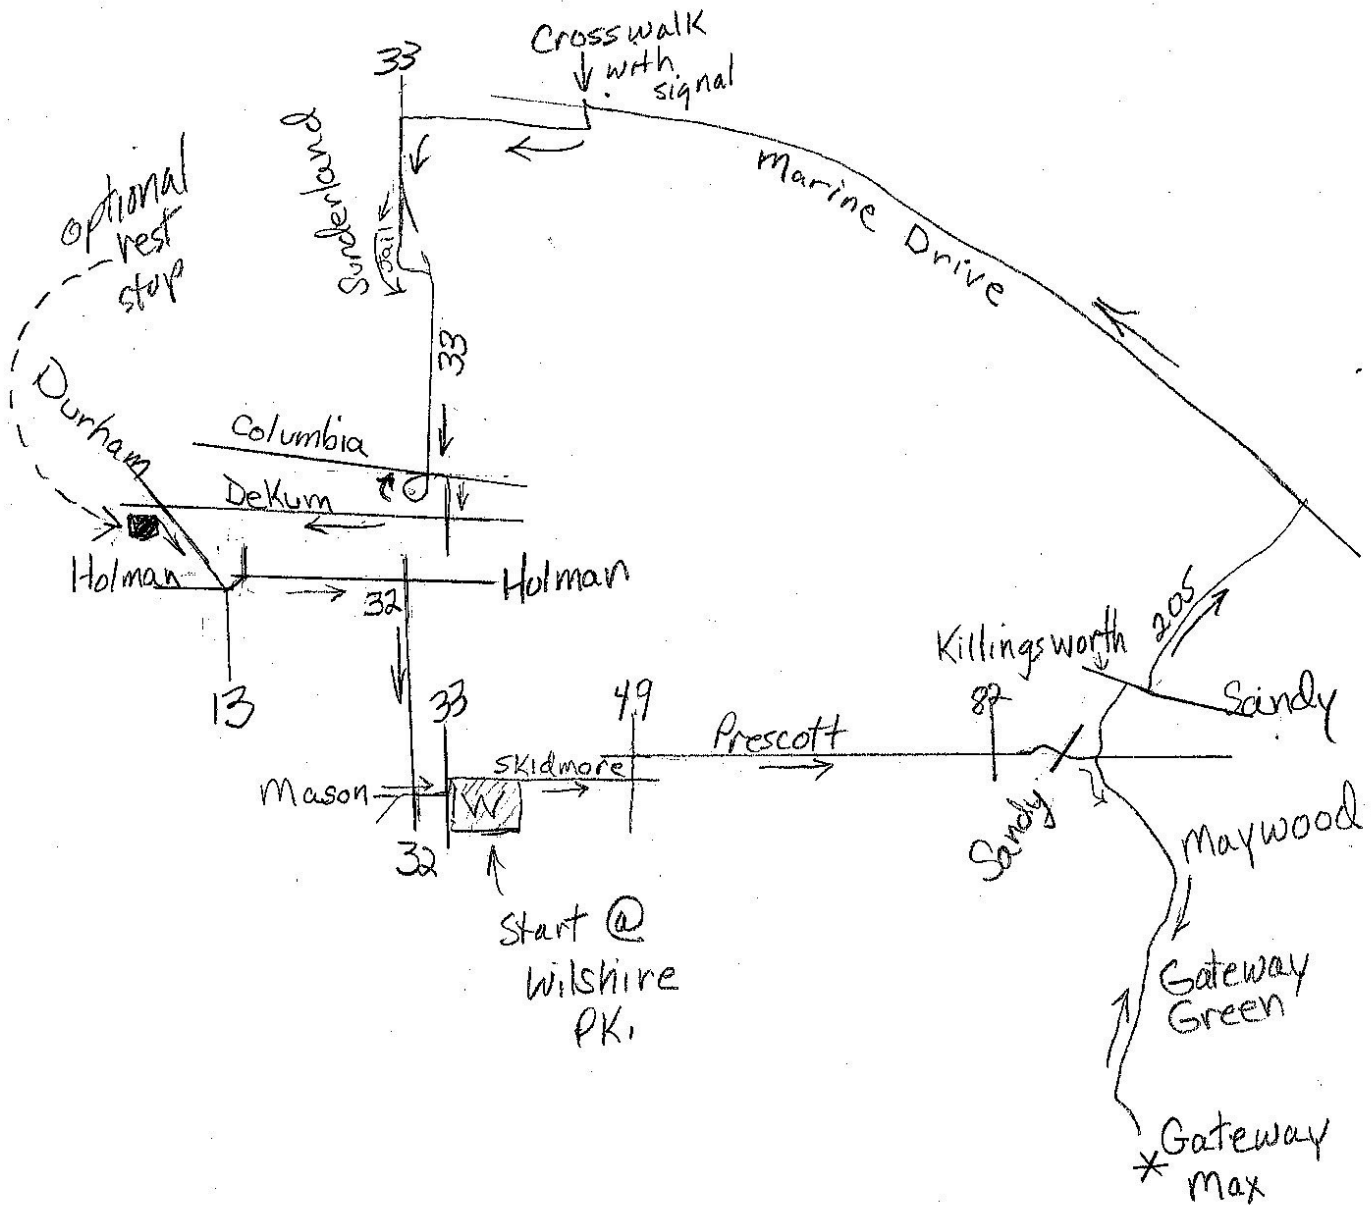 33
Crosswalk
with
signal
Sunderland
Jail
Marine Drive
optional
rest
stop
33
Durham
Columbia
Dekum
Holman
Holman
32
13
205
Killingsworth
Sandy
33
49
82
Prescott
Skidmore
Mason
W
32
Sandy
Maywood
Start @
Wilshire
PK.
Gateway
Green
Gateway
Max